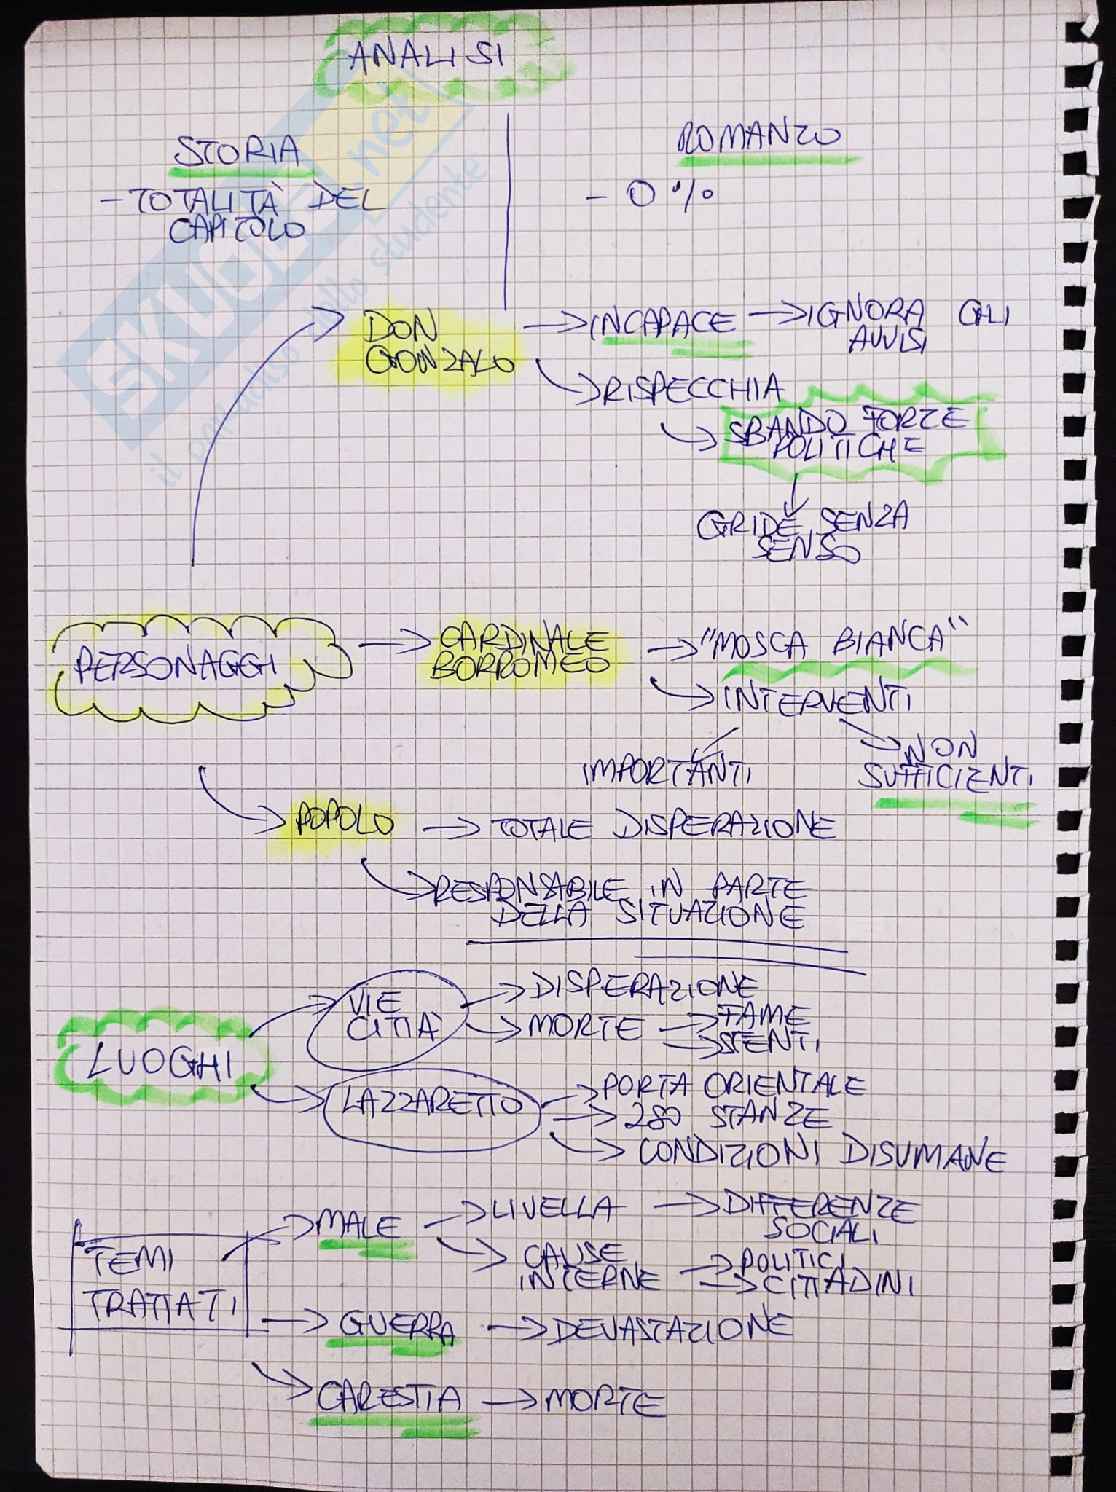 ANALISI
STORIA
ROMANZO
- TOTALITÀ DEL
CAPITOLO
- 0 %
SKUOLA.net
il paradiso dello studente
DON
GONZALO
→ INCAPACE → IGNORA GLI
AVVISI
→ RISPECCHIA
→ SBANDO FORZE
POLITICHE
GRIDE SENZA
SENSO
PERSONAGGI
→ CARDINALE
BORROMEO
→ "MOSCA BIANCA"
→ INTERVENTI
IMPORTANTI
NON
SUFFICIENTI
POPOLO → TOTALE DISPERAZIONE
→ RESPONSABILE IN PARTE
DELLA SITUAZIONE
LUOGHI
VIE
CITTÀ
→ DISPERAZIONE
→ MORTE → FAME
→ STENTI
LAZZARETTO
→ PORTA ORIENTALE
→ 280 STANZE
→ CONDIZIONI DISUMANE
TEMI
TRATTATI
→ MALE → LIVELLA → DIFFERENZE
SOCIALI
→ CAUSE
INTERNE
→ POLITICI
→ CITTADINI
→ GUERRA → DEVASTAZIONE
→ CARESTIA → MORTE